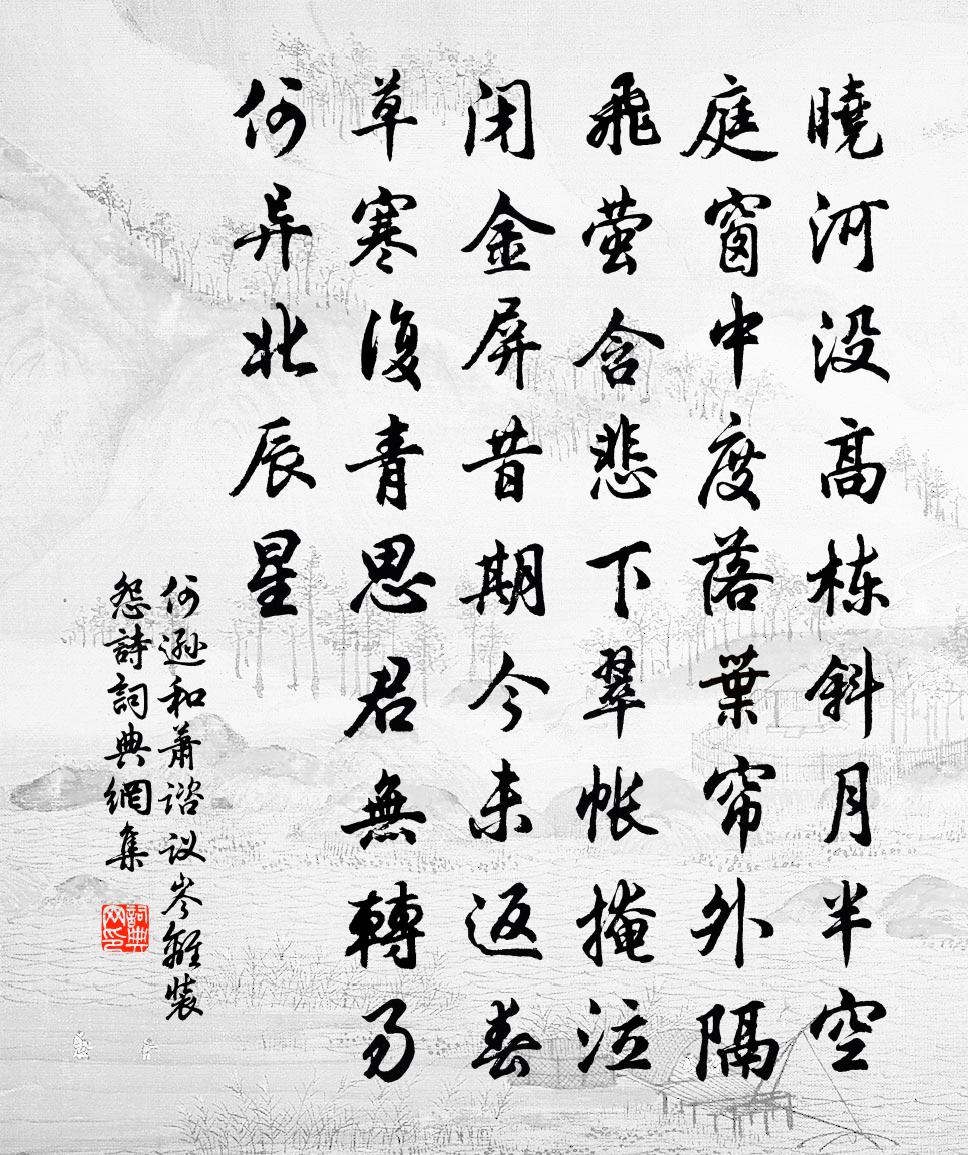 曉河没高栋斜月半空
庭窗中度落葉帘外隔
飛萤含悲下翠帳掩泣
闭金屏昔期今未返春
草寒復青思君無轉易
何异北辰星
何遜和蕭谘议岑離装
怨詩詞典網集
詞典网印